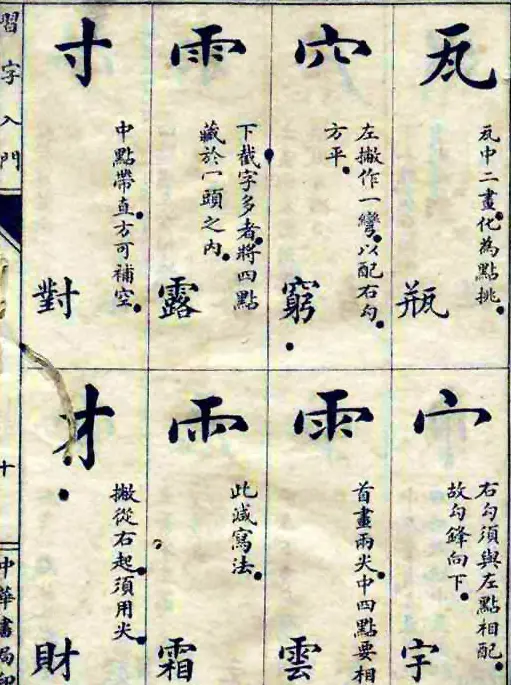 瓦
瓦中二畫化為點挑
瓶
穴
左撇作一彎以配右勾
方平
窮
雨
下截字多者將四點
藏於冖頭之內
露
寸
中點帶直方可補空
對
宀
右勾須與左點相配
故勾鋒向下
字
雨
首畫兩尖中四點要相
雲
雨
此減寫法
霜
才
撇從右起須用尖
財
習字入門
十
中華書局印